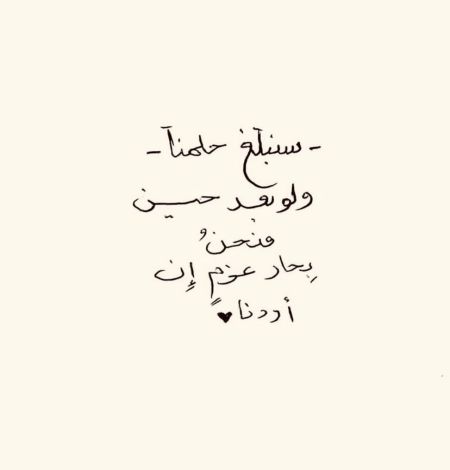 - سنبلغ حلمنا -
ولو بعد حين
فنحنُ
بِحار عزمٍ إن
أردنا♥